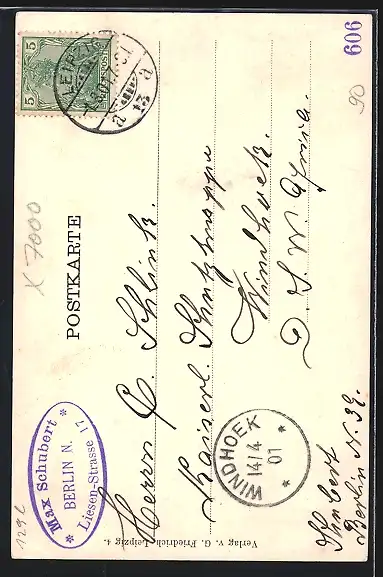 POSTKARTE
Max Schubert
BERLIN N.
Liesen-Strasse 17
Herrn C. Schlink
Kaiserl. Schutztruppe
Windhoek
D. S. W. Afrika.
WINDHOEK
14/4
01
Schubert
Berlin N. 39.
Verlag v. G. Friedrich, Leipzig 4.
5
5
LEIPZIG
13
a
a
606
90
X 7000